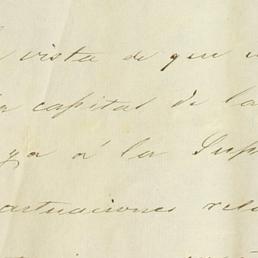 vista de que
capital de la
ya á la Sup
actuaciones rela